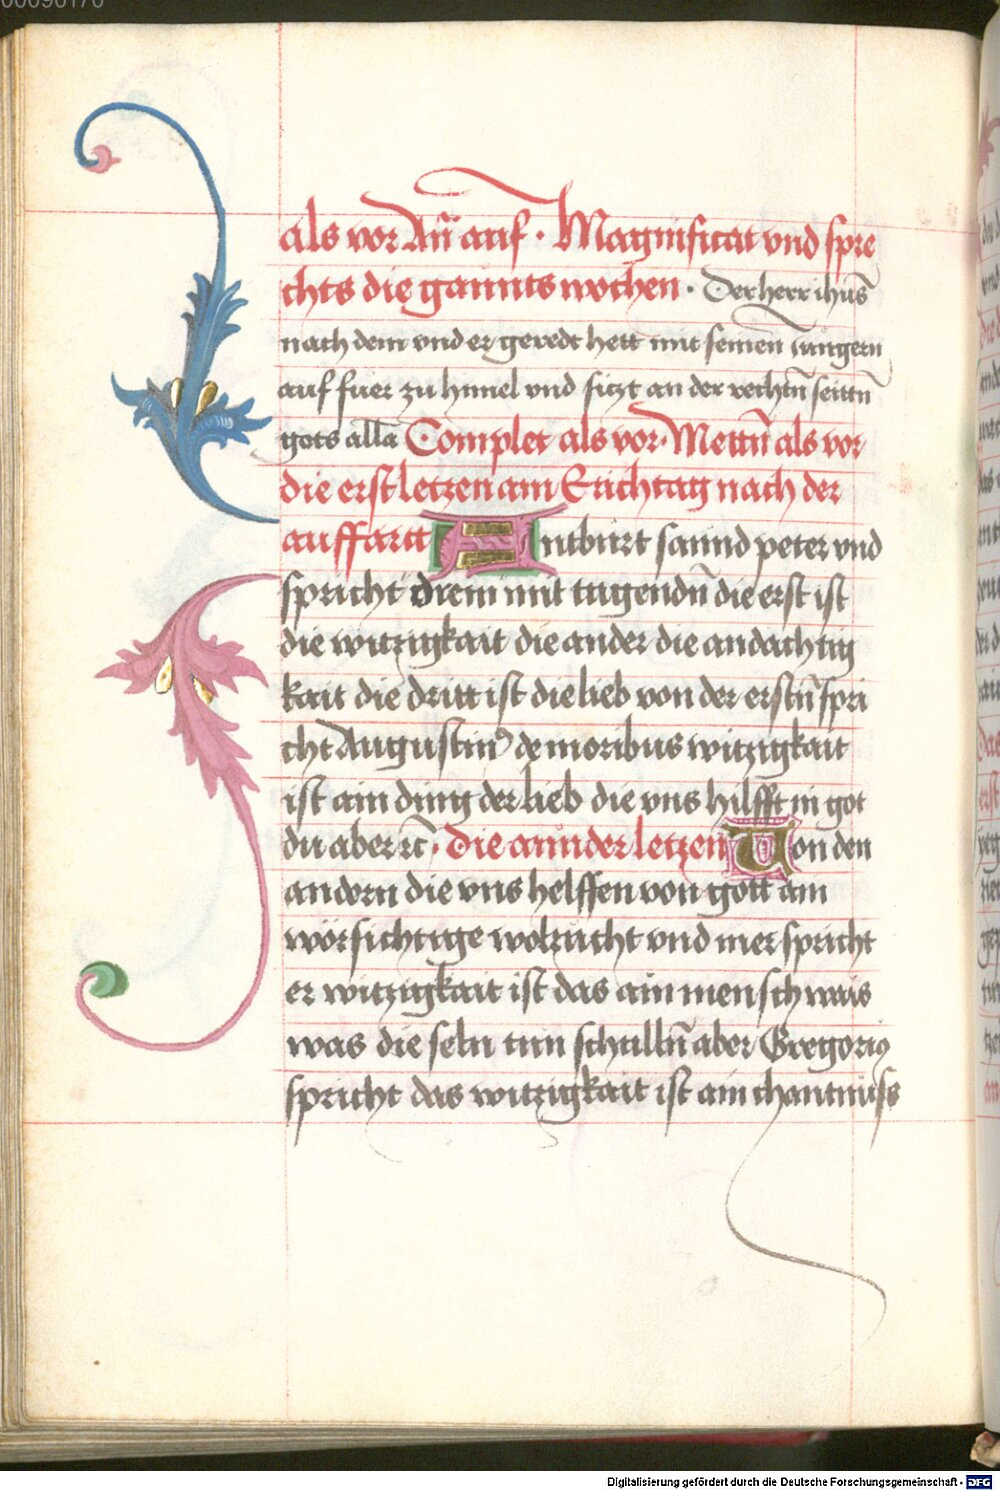 00090170
als vor An̄ auf · Magnificat vnd spre
chts die gannts wochen · Der herr ihūs
nach dem vnd er geredt hett mit seinen̄ iungern
auf fuer zu himel vnd siczt an der rechtn̄ seittn̄
gots alla Complet als vor · Mettn̄ als vor
die erst leczen am Erichtag nach der
auffartt Antburt sannd peter vnd
spricht drem mit tugendn̄ die erst ist
die witzigkait die ander die andachtig
kait die dritt ist die lieb von der erstn̄ spri
cht Augustin9 de moribus witzigkait
ist ain ding der lieb die vns hilfft in got
du aber rc̄ · die annder letzen Von den
andern die vns helffen von gott am
wörsichtige wolzucht vnd mer spricht
er witzigkait ist das ain mensch wais
was die seln tun schulln̄ aber Gregori9
spricht das witzigkait ist ain chantnüss
Digitalisierung gefördert durch die Deutsche Forschungsgemeinschaft - DFG